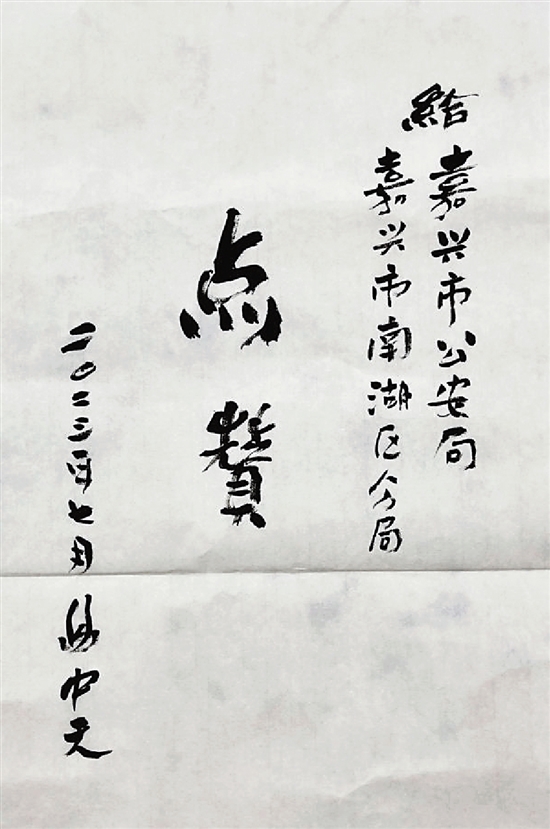 给嘉兴市公安局
嘉兴市南湖区分局
点赞
二〇二三年七月 中天